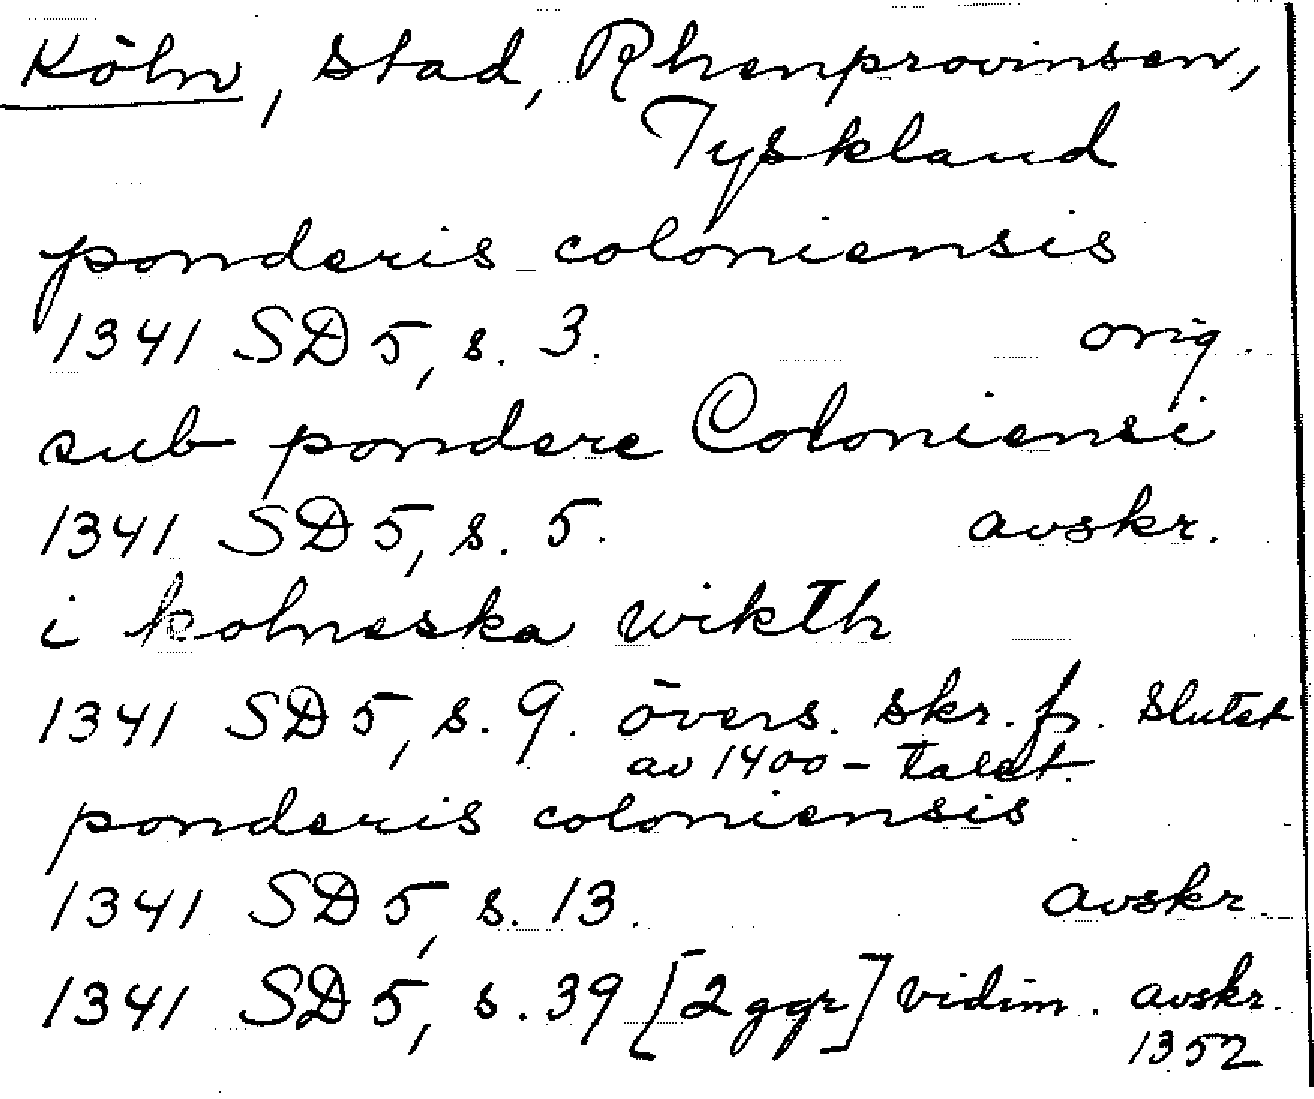 Köln, stad, Rhenprovinsen,
Tyskland
ponderis coloniensis
1341 SD 5, s. 3. orig.
sub pondere Coloniensi
1341 SD 5, s. 5. avskr.
i kolneska wikth
1341 SD 5, s. 9. övers. skr. fr. slutet
av 1400-talet.
ponderis coloniensis
1341 SD 5, s. 13. avskr.
1341 SD 5, s. 39 [2 ggr] vidim. avskr.
1352